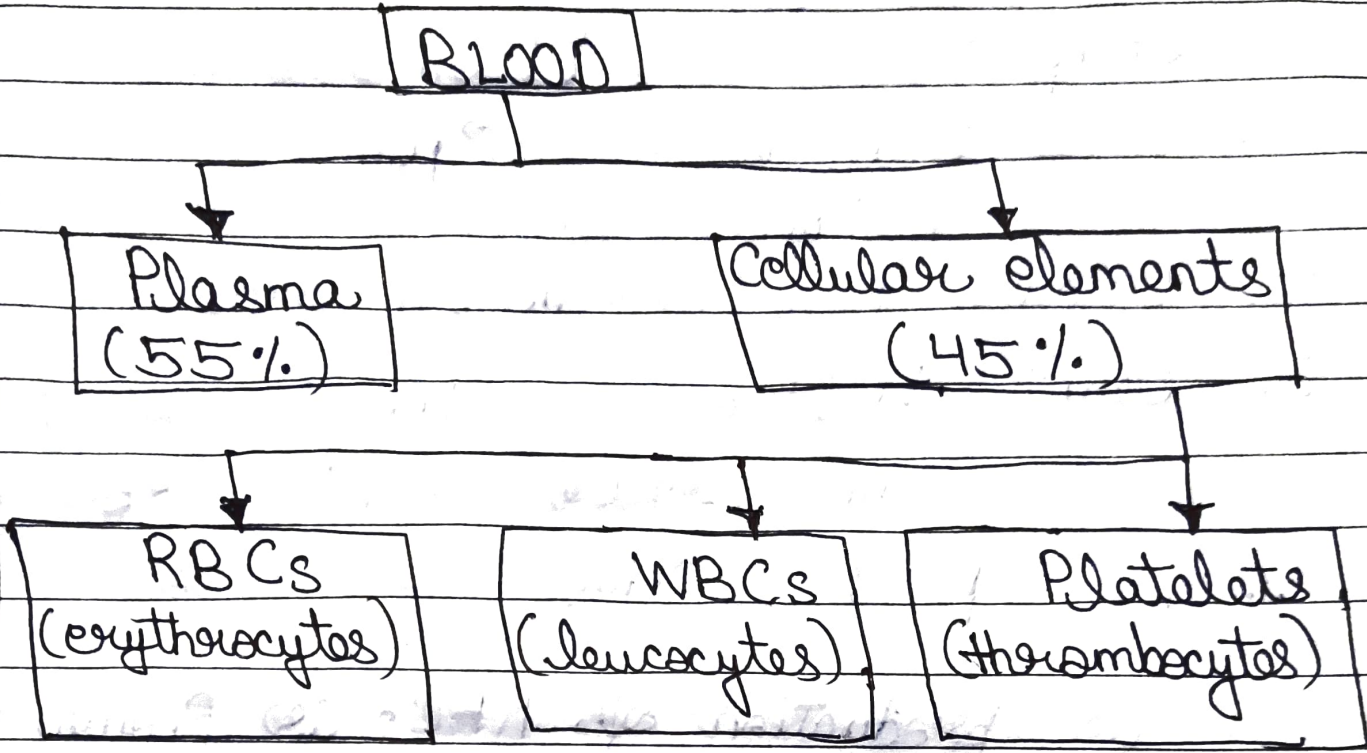 BLOOD
Plasma
(55%)
Cellular elements
(45%)
RBCs
(erythrocytes)
WBCs
(leucocytes)
Platelets
(thrombocytes)